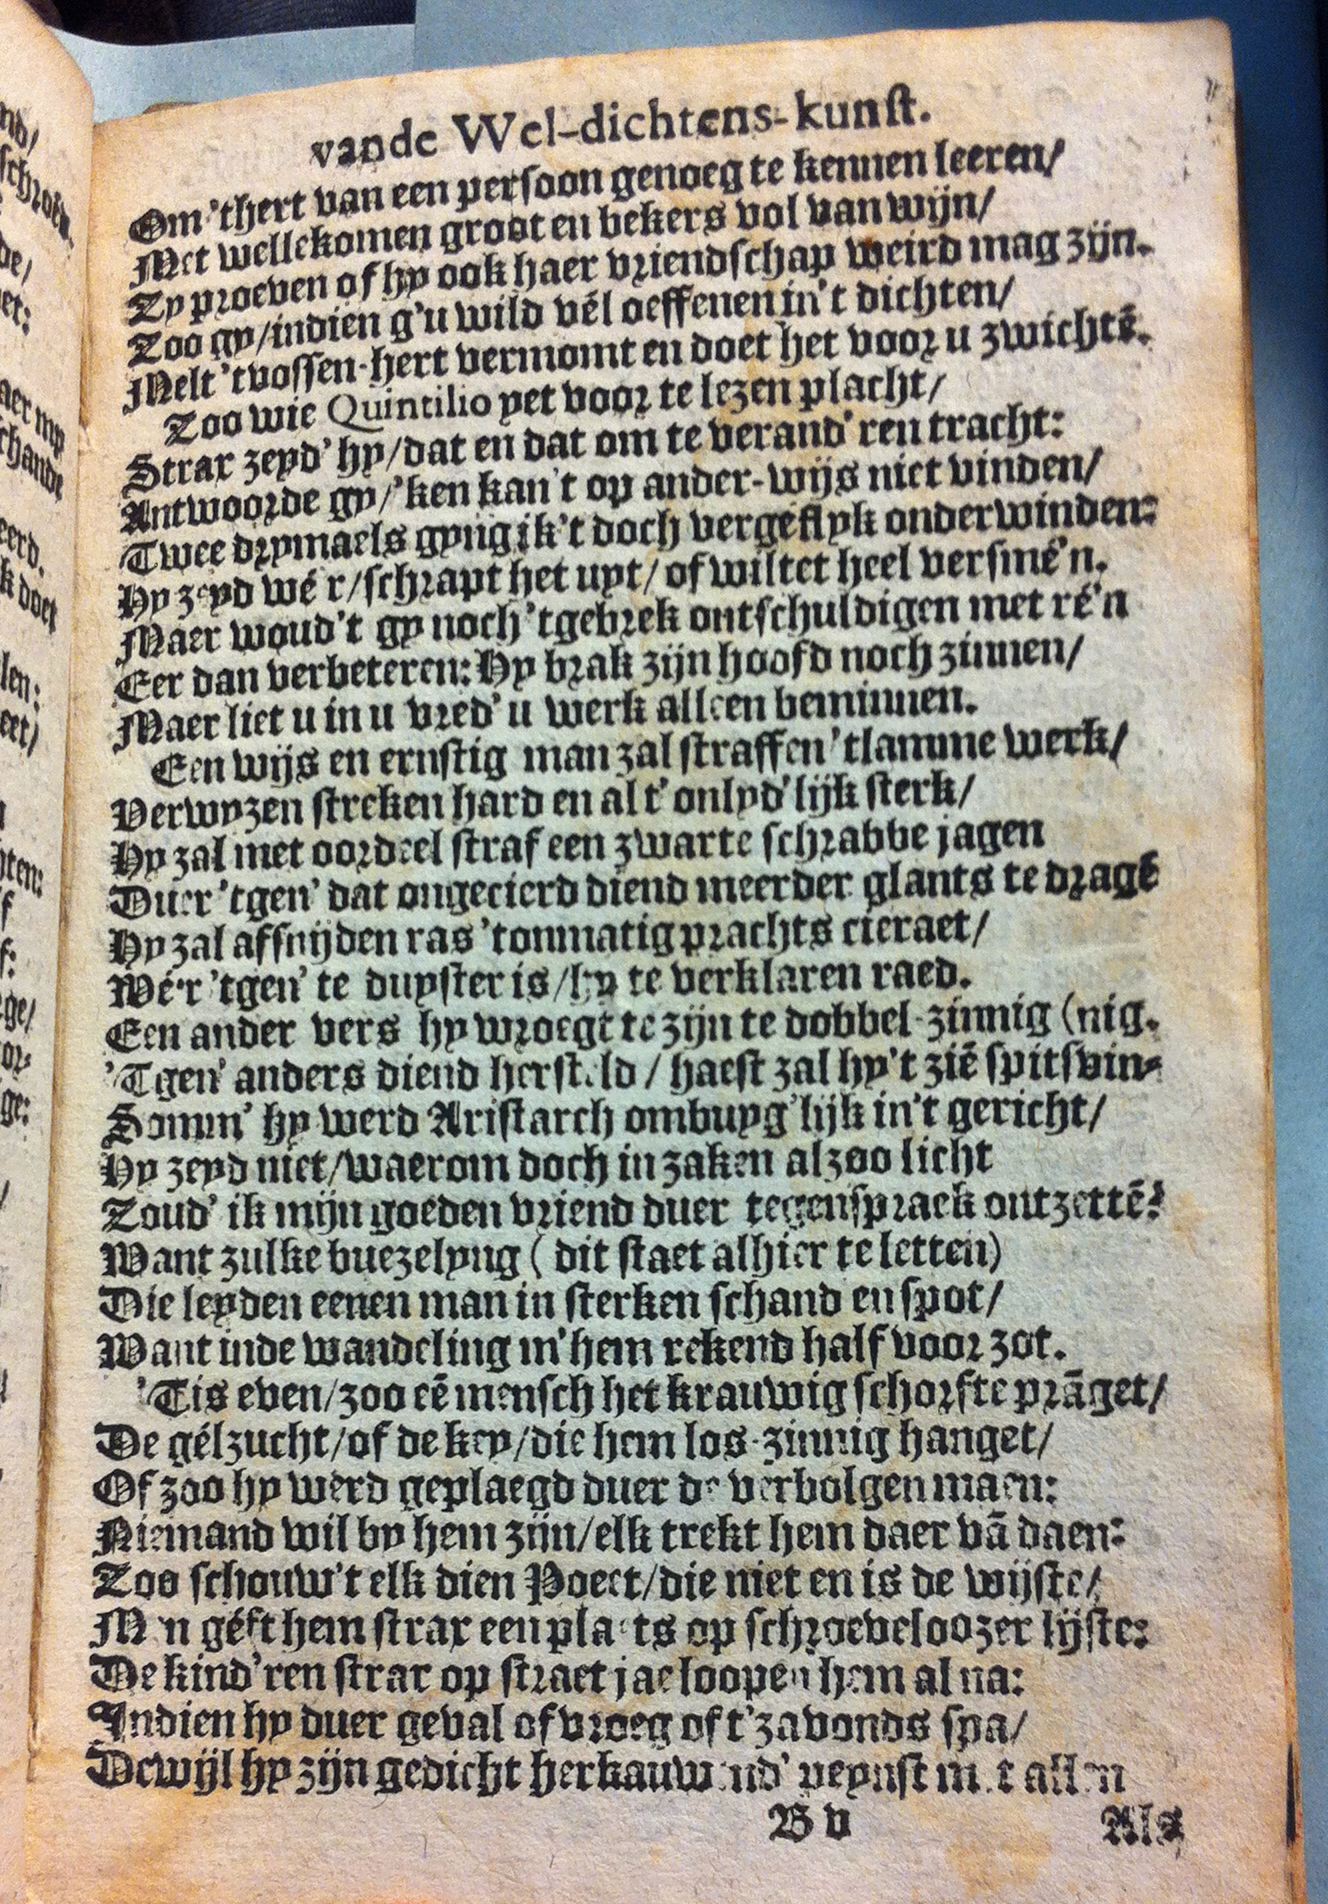 vande Wel-dichtens-kunst.
Om 'thert van een persoon genoeg te kennen leeren/
Met wellekomen groot en bekers vol van wijn/
Zy proeven of hy ook haer vriendschap weird mag zijn.
Zoo gy/indien g'u wild vél oeffenen in't dichten/
Melt 'tvossen-hert vermomt en doet het voor u zwichtē.
Zoo wie Quintilio yet voor te lezen placht/
Strax zeyd' hy/dat en dat om te verand'ren tracht:
Antwoorde gy/'ken kan't op ander-wijs niet vinden/
Twee drymaels gyng ik't doch vergéflyk onderwinden:
Hy zeyd wé'r/schrapt het uyt/of wiltet heel versmé'n.
Maer woud't gy noch 'tgebrek ontschuldigen met ré'n
Eer dan verbeteren: Hy brak zijn hoofd noch zinnen/
Maer liet u in u vred' u werk alleen beminnen.
Een wijs en ernstig man zal straffen 'tlamme werk/
Verwyzen streken hard en al t' onlyd'lijk sterk/
Hy zal met oordeel straf een zwarte schrabbe jagen
Duer 'tgen' dat ongecierd diend meerder glants te dragē
Hy zal affnijden ras 'tonmatig prachts cieraet/
Wé'r 'tgen' te duyster is/hy te verklaren raed.
Een ander vers hy wroegt te zijn te dobbel-zinnig (nig.
'Tgen' anders diend hersteld / haest zal hy't ziē spitsvin-
Somm' hy werd Aristarch ombuyg'lijk in't gericht/
Hy zeyd niet/waerom doch in zaken alzoo licht
Zoud' ik mijn goeden vriend duer tegensprack ontzettē?
Want zulke buezelyng ( dit staet alhier te letten)
Die leyden eenen man in sterken schand en spot/
Want inde wandeling m'hem rekend half voor zot.
'Tis even/zoo eē mensch het krauwig schorfte prāget/
De gélzucht/of de key/die hem los-zinnig hanget/
Of zoo hy werd geplaegd duer de verbolgen maen:
Niemand wil by hem zijn/elk trekt hem daer vā daen:
Zoo schouw't elk dien Poeet/die niet en is de wijste/
Men géft hem strax een plaets op schroeveloozer lijste:
De kind'ren strax op straet jae loopen hem al na:
Indien hy duer geval of vroeg of t'zavonds spa/
Dewijl hy zijn gedicht herkauwend' peynst met allen
B v
Als